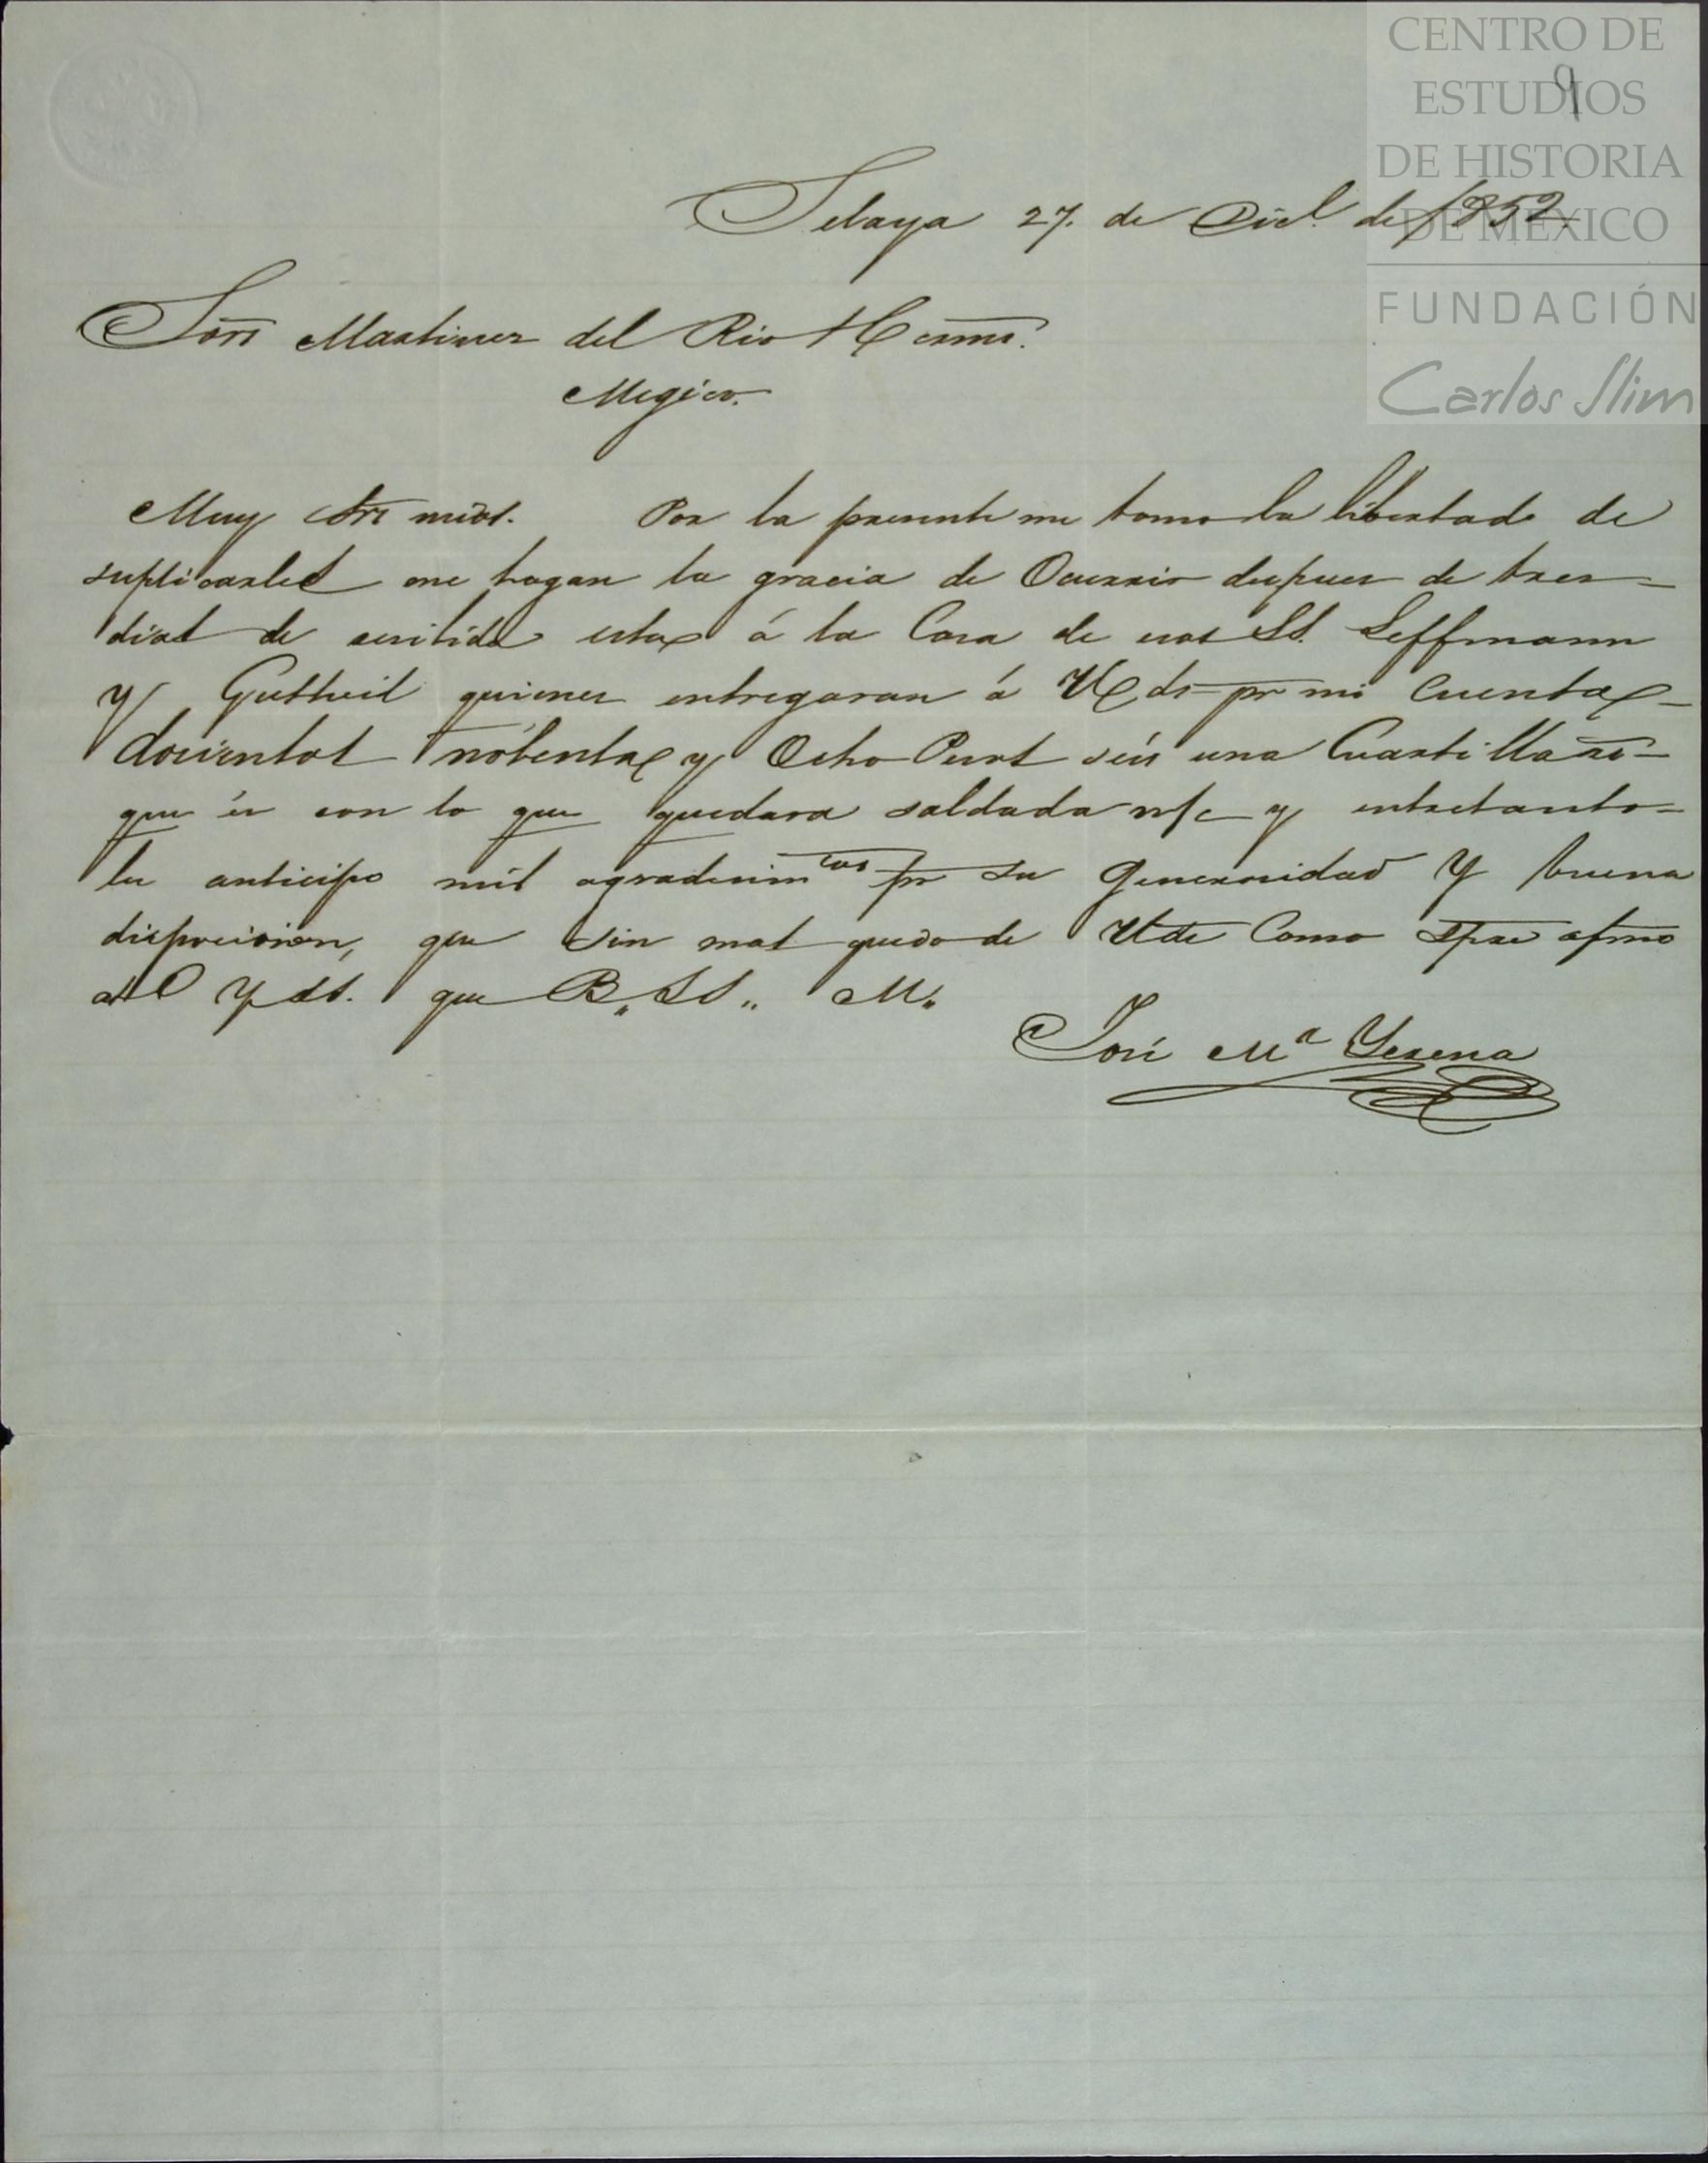 CENTRO DE
ESTUDIOS
DE HISTORIA
DE MÉXICO
FUNDACIÓN
Carlos Slim
9
Selaya 27. de Dicl. de 1852.
Sôrs Martinez del Rio Hermos.
Megico.
Muy Srs mios. Por la presente me tomo la libertad de
suplicarles me hagan la gracia de Ocurrir despues de tres
dias de resibida esta á la Casa de esos SS. Leffmann
y Gutheil quienes entregaran á Vds pr mi Cuenta
docientos nobenta y Ocho Pesos seis una Cuartilla rs
que és con lo que quedara saldada n/c y entretanto
les anticipo mil agradecimtos pr su Generosidad Y buena
disposicion, que sin mas quedo de Uds Como spre afmo
atto Y SS. que B,, SS,, M,,
José Ma Yerena